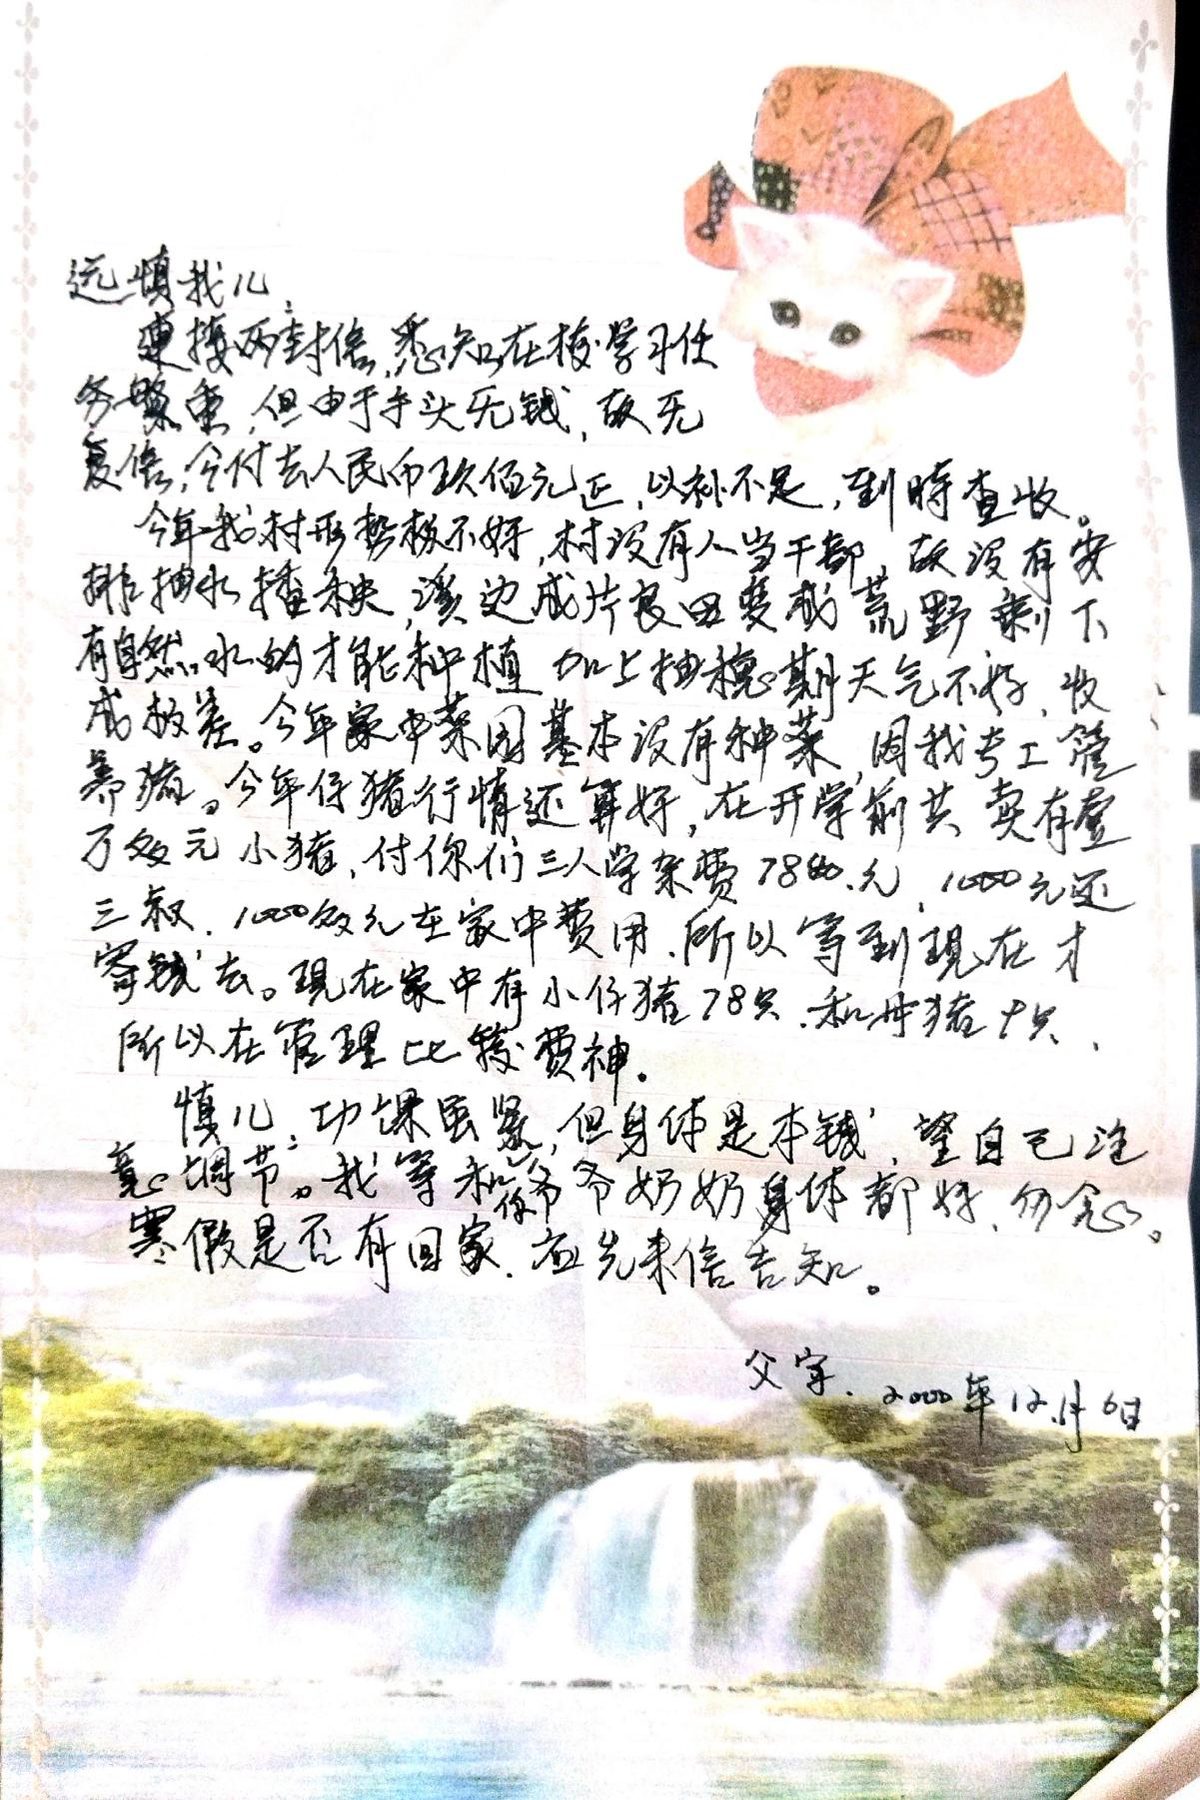 远慎我儿：
連接两封信，悉知在校学习任
务繁重，但由于手头无钱，故无
复信，今付去人民币玖佰元正，以补不足，到時查收。
今年我村形势极不好，村没有人当干部，故没有安
排抽水播秧，溪边成片良田变成荒野剩下
有自然水的才能种植 加上抽穗期天气不好，收
成极差。今年家中菜园基本没有种菜，因我专工管
养猪。今年仔猪行情还算好，在开学前共卖有壹
万多元小猪，付你们三人学杂费78元，1000元还
三叔，1000多元在家中费用，所以等到現在才
寄钱去。現在家中有小仔猪78只，和母猪9只，
所以在管理比较费神。
慎儿：功课虽紧，但身体是本钱，望自己注
意调节。我等和你爷爷奶奶身体都好，勿念。
寒假是否有回家，应先来信告知。
父字．2000年12.月6日